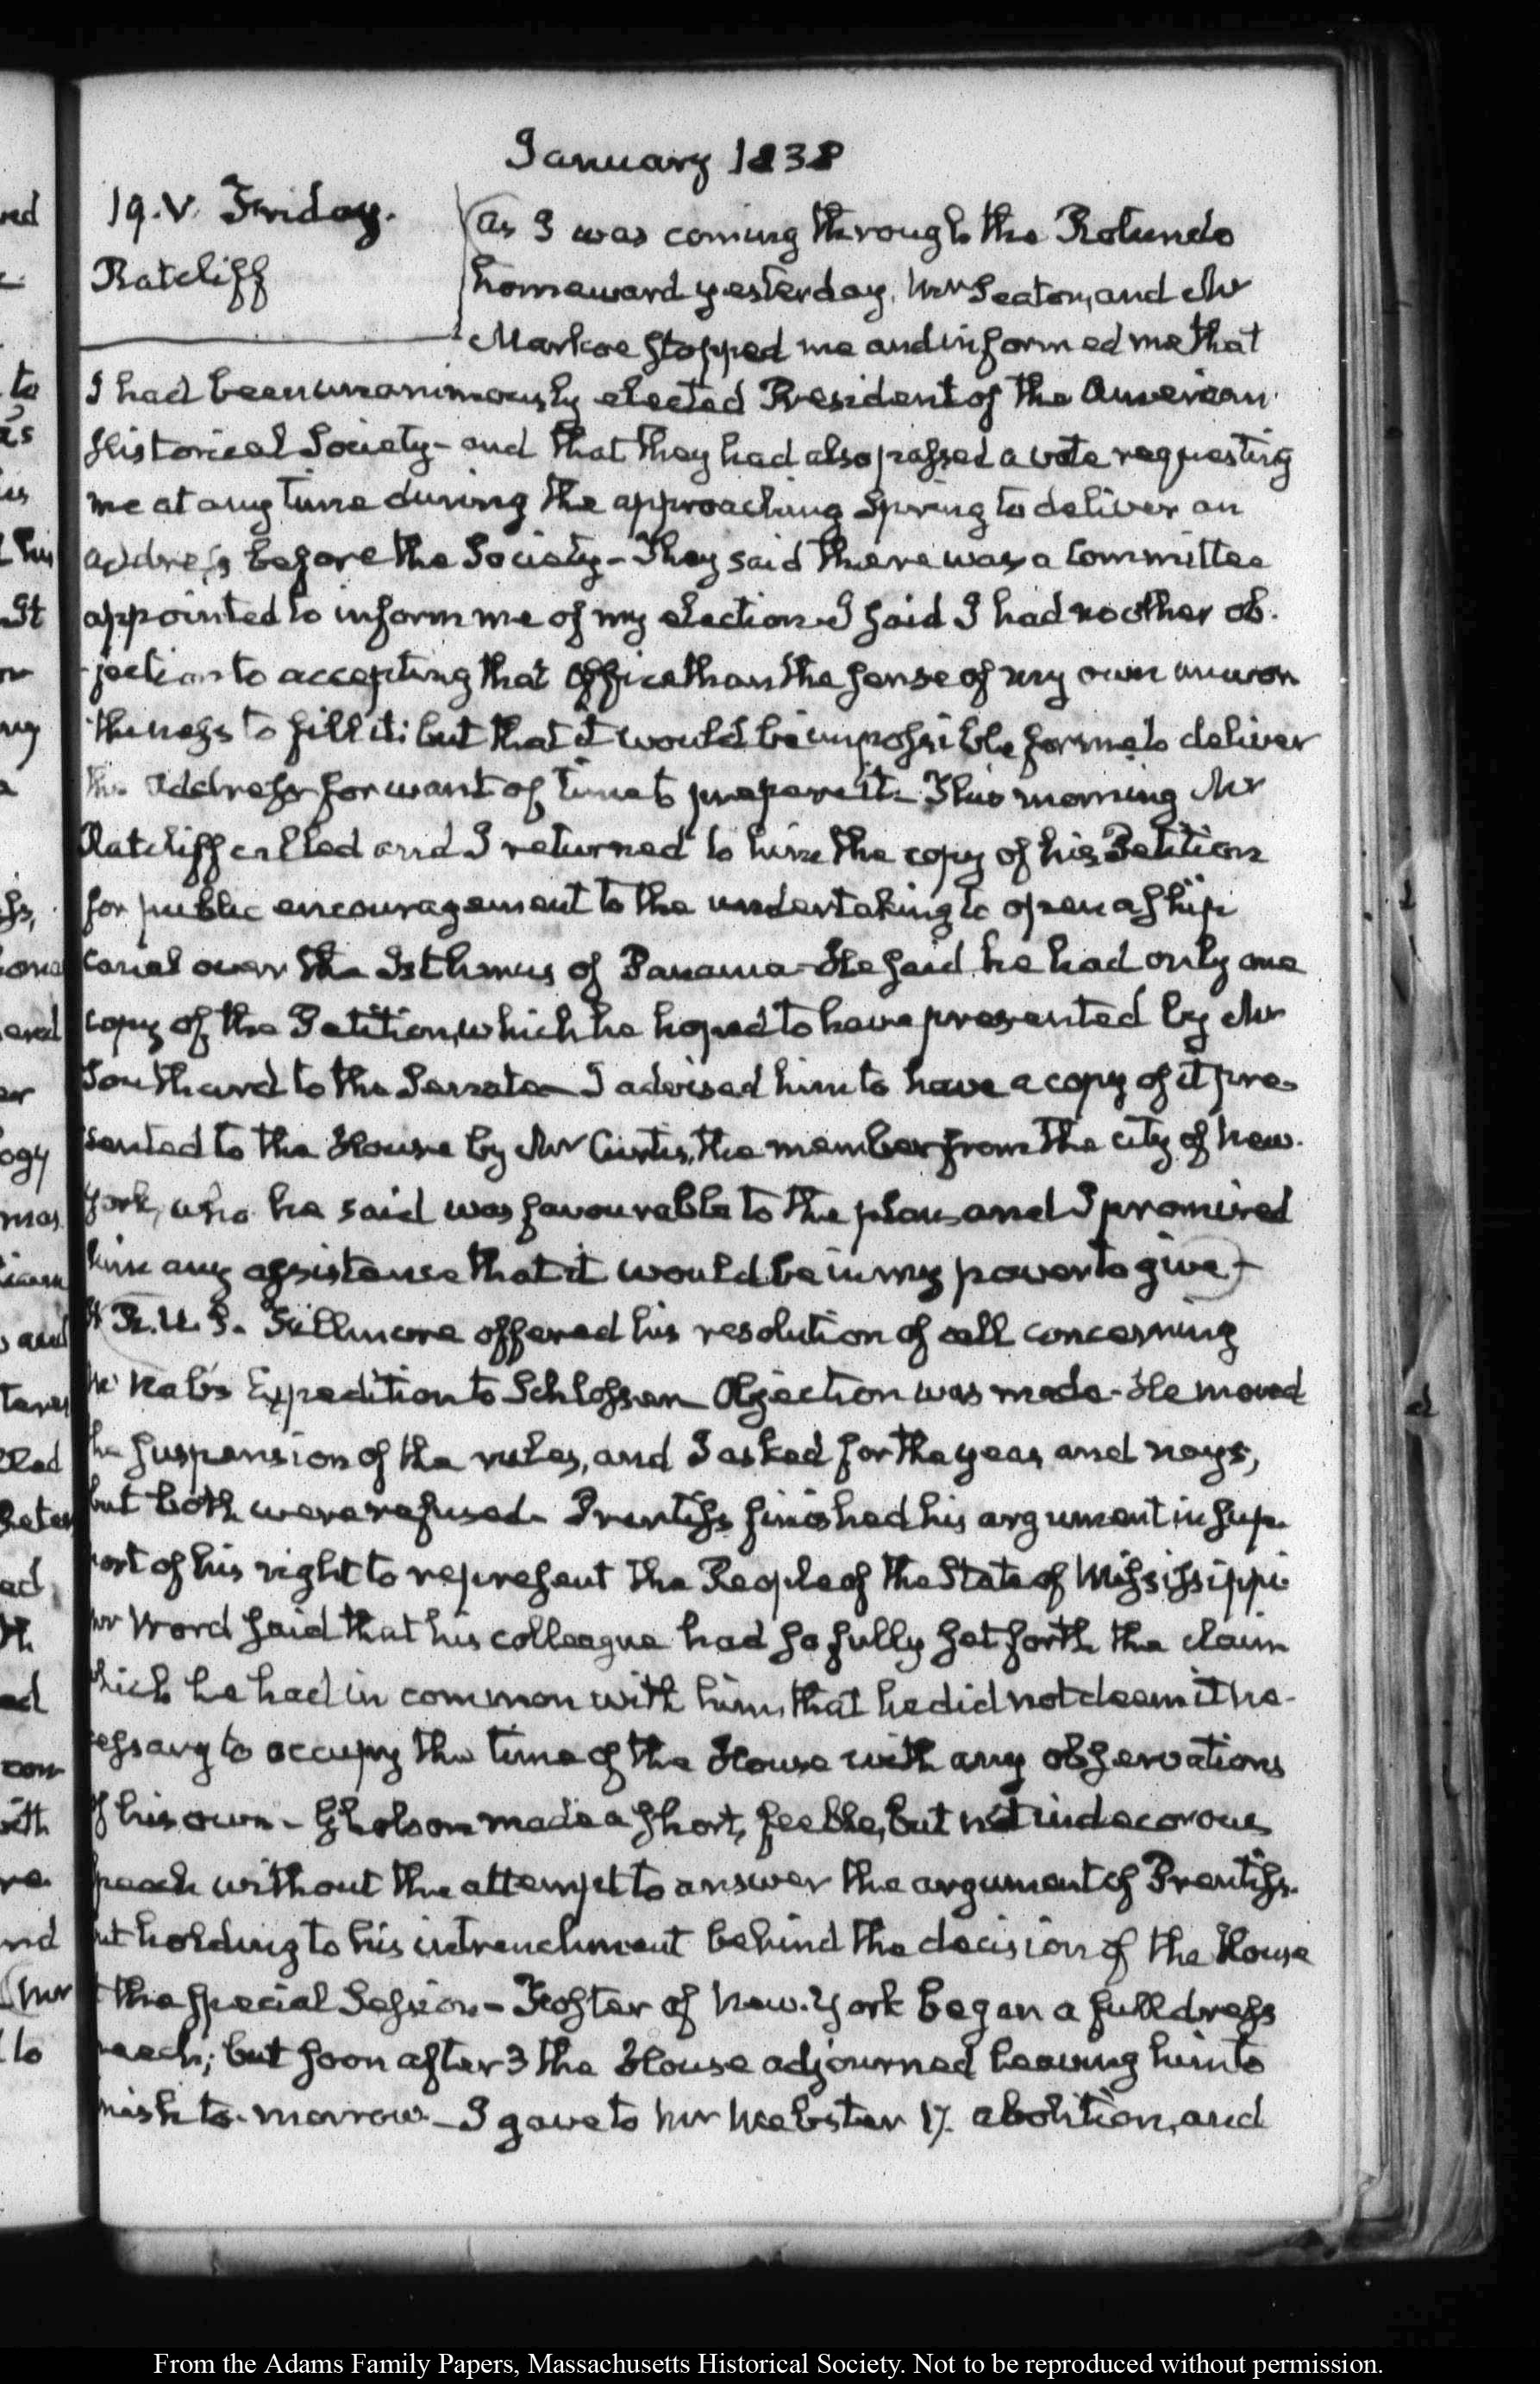 January 1838
19. V. Friday.
Ratcliff
As I was coming through the Rotundo
homeward yesterday, Mr Seaton, and Mr
Markoe stopped me and informed me that
I had been unanimously elected President of the American
Historical Society- and that they had also passed a vote requesting
me at any time during the approaching Spring to deliver an
address before the Society- They said there was a Committee
appointed to inform me of my election- I said I had no other ob-
-jection to accepting that Office than the sense of my own unwor
-thiness to fill it: but that it would be impossible for me to deliver
the address for want of time to prepare it- This morning Mr
Ratcliff called and I returned to him the copy of his Petition
for public encouragement to the undertaking to open a ship
canal over the Isthmus of Panama- He said he had only one
copy of the Petition, which he hoped to have presented by Mr
Southard to the Senate- I advised him to have a copy of it pre-
sented to the House by Mr Curtis, the member from the city of New-
York, who he said was favourable to the plan, and I promised
him any assistance that it would be in my power to give-
H.R.U.S. Fillmore offered his resolution of call concerning
McNab's Expedition to Schlosser- Objection was made- He moved
the suspension of the rules, and I asked for the yeas and nays,
but both were refused- Prentiss finished his argument in sup-
port of his right to represent the People of the State of Mississippi-
Mr Word said that his colleague had so fully set forth the claim
which he had in common with him, that he did not deem it ne-
cessary to occupy the time of the House with any observations
of his own- Gholson made a short, feeble, but not indecorous
speech without the attempt to answer the argument of Prentiss-
but holding to his intrenchment behind the decision of the House
at the special Session- Foster of New-York began a full dress
speech; but soon after 3 the House adjourned leaving him to
finish to-morrow- I gave to Mr Webster 17. abolition, and
From the Adams Family Papers, Massachusetts Historical Society. Not to be reproduced without permission.